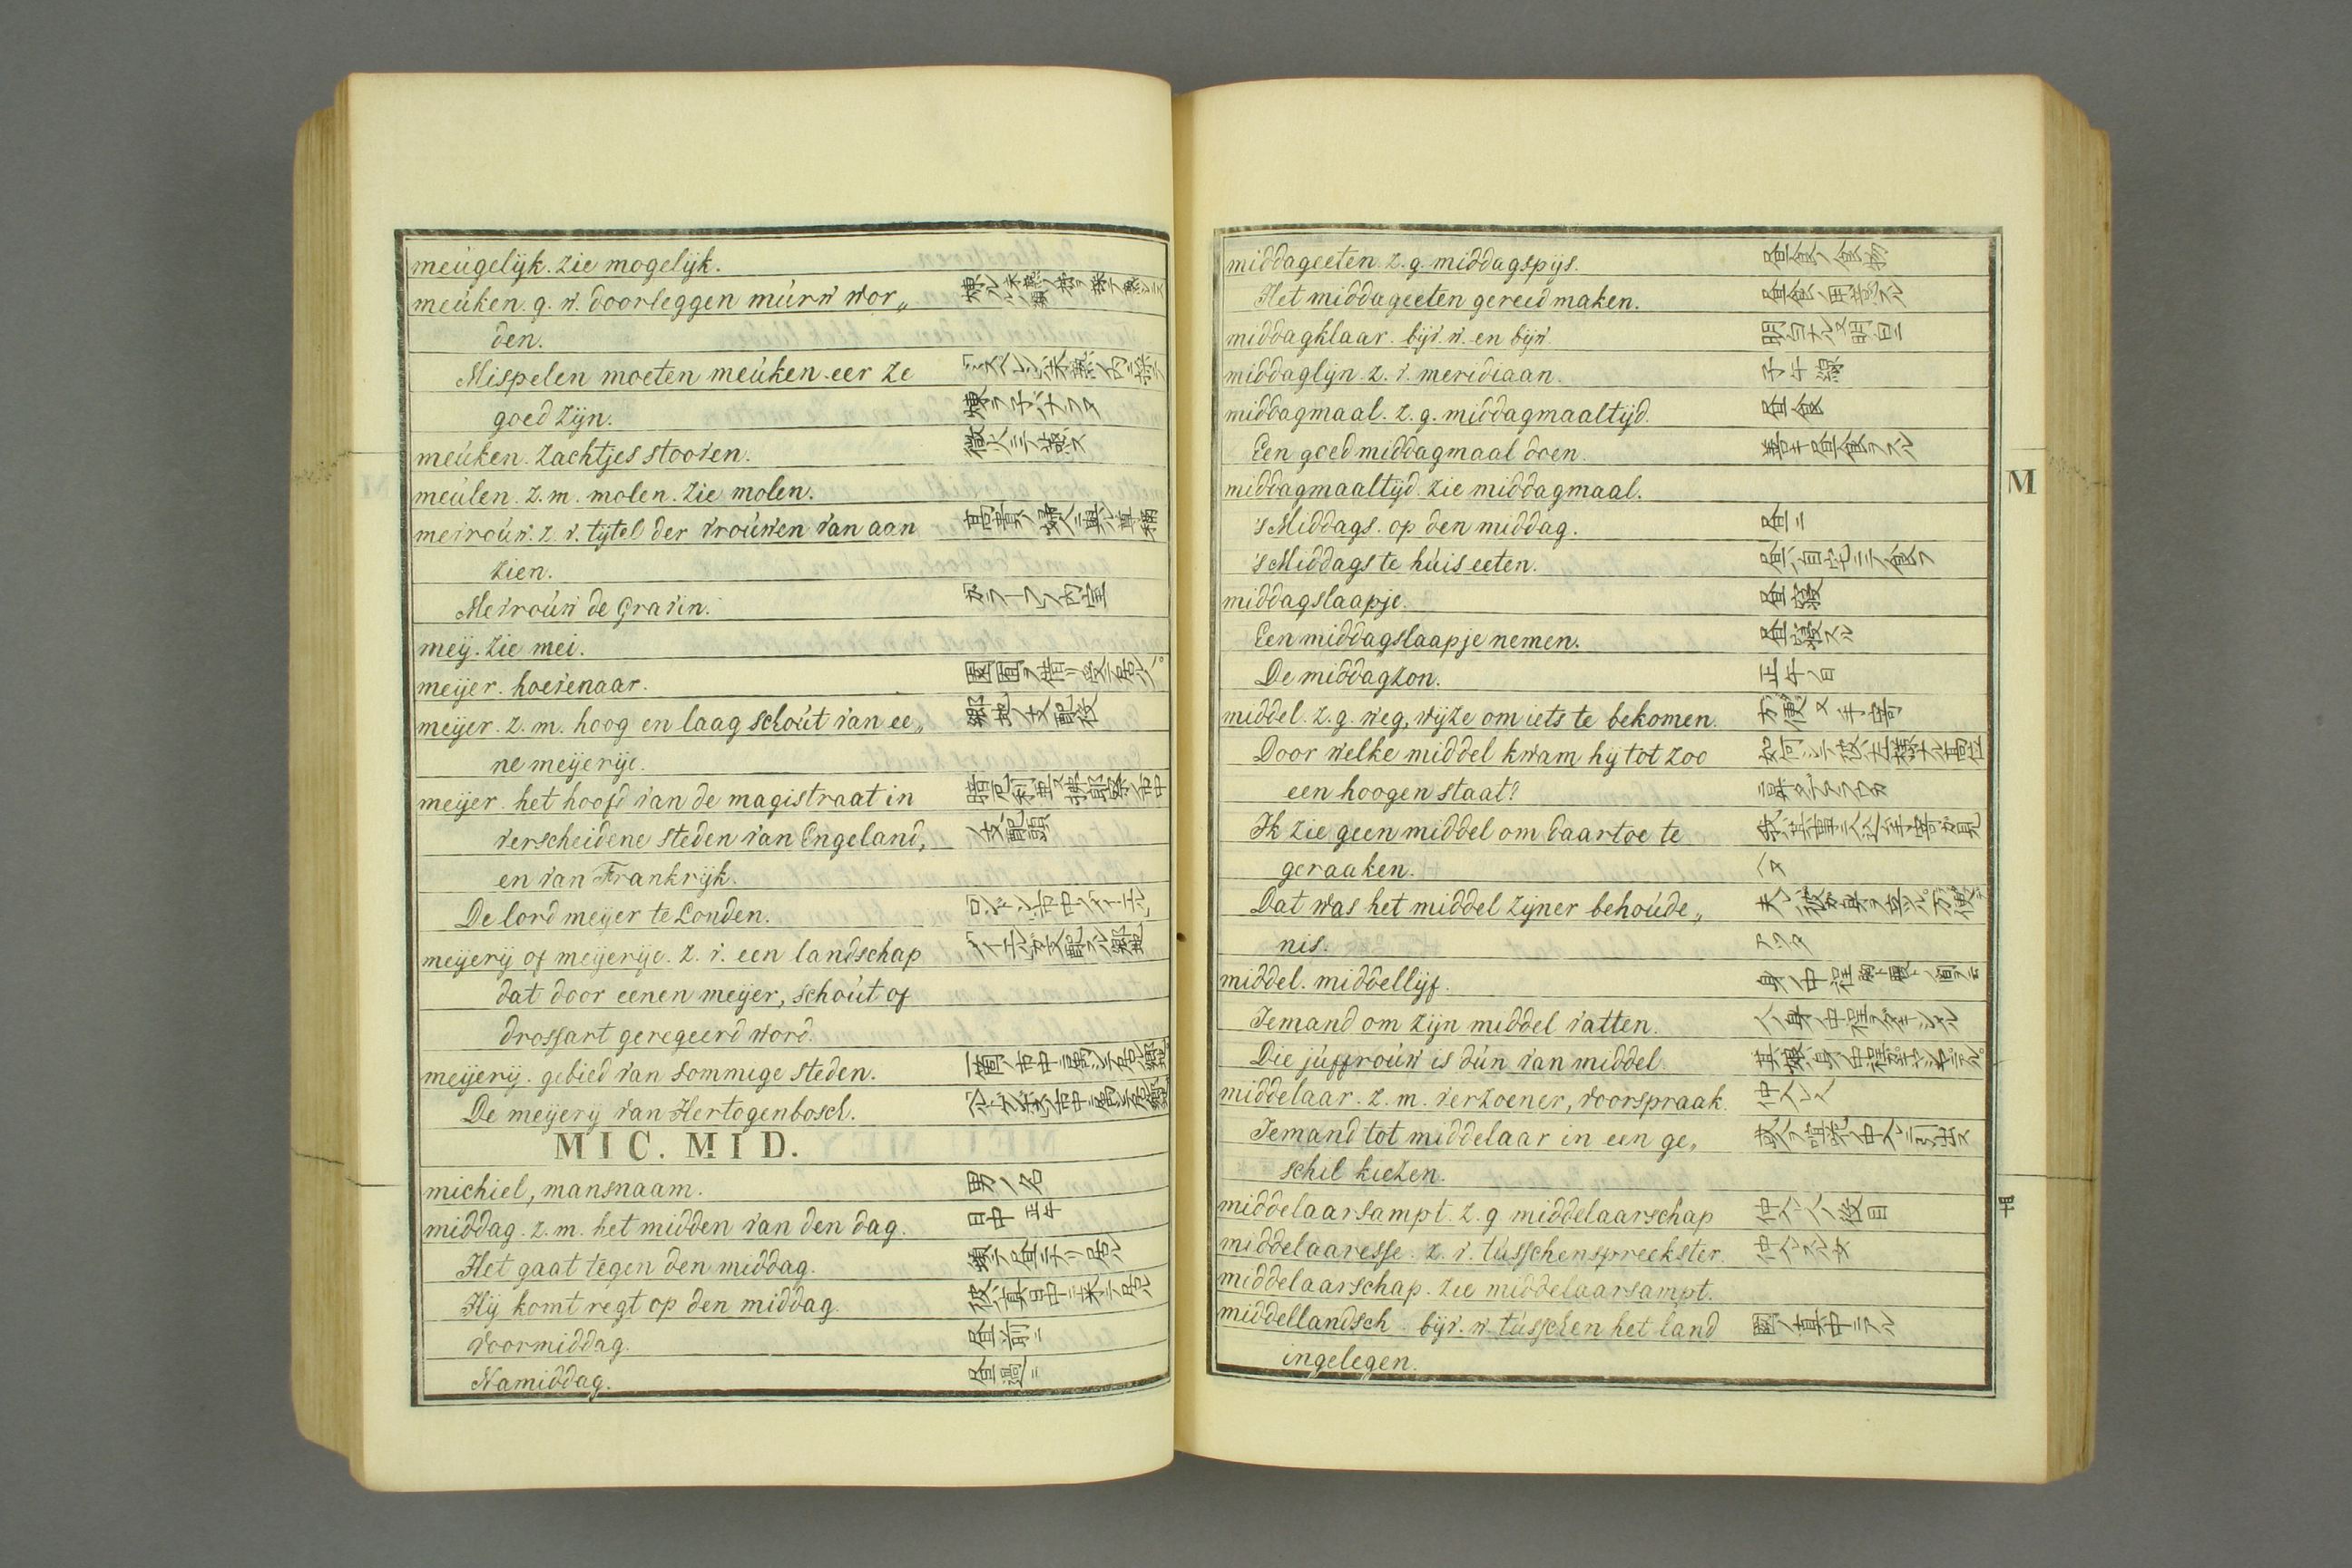 meúgelijk. zie mogelijk.
meúken. g. w. doorleggen múrw wor„
den.
Mispelen moeten meúken eer ze
goed zijn. 煉ラ子バナラヌ
meúken. zachtjes stooven. 微火ニテ蒸ス
meúlen. z. m. molen. zie molen.
mevroúw. z. v. tijtel der vroúwen van aan 高貴ノ婦人ニ與ル尊稱
zien.
Mevroúw de Gravin. ガラーフノ内室
mey. zie mei.
meijer. hoevenaar.
meijer. z. m. hoog en laag schoút van ee„ 郷地ノ支配役
ne meijerije.
meijer. het hoofd van de magistraat in 諳厄利亜又拂郎察ノ市中
verscheidene steden van Engeland, ノ支配頭
en van Frankrijk.
De lord meijer te Londen. ロンドン市中ノメイール
meijerij of meijerije. z. v. een landschap メイールガ支配スル郷地
dat door eenen meijer, schoút of
drossart geregeerd word.
meijerij. gebied van sommige steden.
De meijerij van Hertogenbosch.
MIC. MID.
michiel, mansnaam. 男ノ名
middag. z. m. het midden van den dag. 日中 正午
Het gaat tegen den middag.
Hij komt regt op den middag. 彼ハ真日中ニ来テ居ル
voormiddag. 昼前ニ
Namiddag. 昼過ニ
middageeten. z. g. middagspijs. 昼食ノ食物
Het middageeten gereed maken. 昼食ノ用意スル
middagklaar. bijv. w. en bijw. 明白ナル又明白ニ
middaglijn. z. v. meridiaan. 子午線
middagmaal. z. g. middagmaaltijd. 昼食
Een goed middagmaal doen. 善キ昼食ヲスル
middagmaaltijd. zie middagmaal.
's Middags. op den middag. 昼ニ
's Middags te húis eeten. 昼ハ自宅ニテ食フ
middagslaapje. 昼寝
Een middagslaapje nemen. 昼寝スル
De middagzon. 正午ノ日
middel. z. g. weg, wijze om iets te bekomen. 方便又手寄
Door welke middel kwam hij tot zoo 如何シテ彼ハ左様ナル高位
een hoogen staat? ニ昇タデアラウカ
Ik zie geen middel om daartoe te
geraaken. ヘヌ
Dat was het middel zijner behoúde„
nis. アツタ
middel. middellijf.
Iemand om zijn middel vatten.
Die júffroúw is dún van middel.
middelaar. z. m. verzoener, voorspraak. 仲人
Iemand tot middelaar in een ge„
schil kiezen.
middelaarsampt. z. g. middelaarschap 仲人ノ役目
middelaaresse. z. v. tússchenspreekster. 仲人スル女
middelaarschap. zie middelaarsampt.
middellandsch. bijv. w. tússchen het land 國ノ真中ニアル
ingelegen.
M